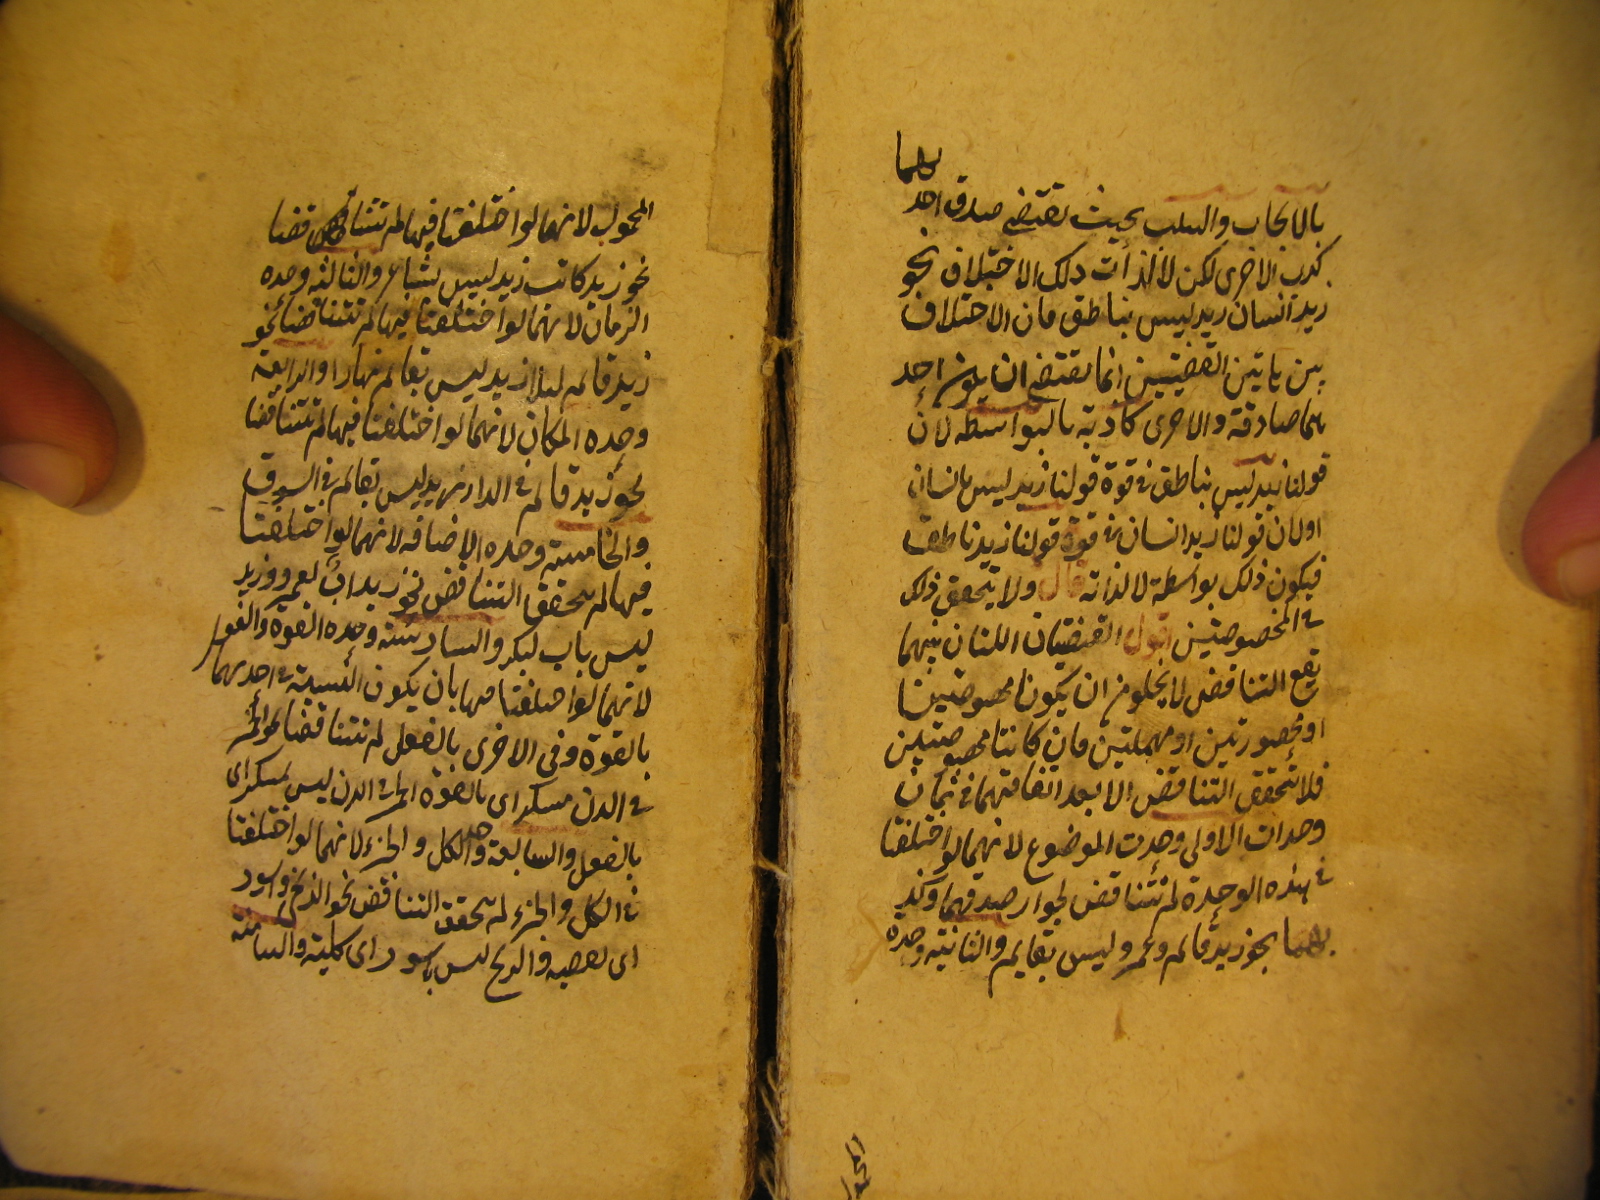 بالايجاب والسلب بحيث تقتضي صدق احد
يهما
كذب الاخرى لكن لا لذات ذلك الاختلاف نحو
زيد انسان زيد ليس بناطق فان الاختلاف
بين هاتين القضيتين انما يقتضي ان يكون احد
يهما صادقة والاخرى كاذبة بالواسطة لان
قولنا زيد ليس بناطق في قوة قولنا زيد ليس بانسان
اولان قولنا زيد انسان في قوة قولنا زيد ناطق
فيكون ذلك بواسطة لا لذاته قال ولا يتحقق ذلك
في المخصوصتين اقول القضيتان اللتان بينهما
يقع التناقض لا يخلو من ان يكونا مخصوصتين
او محصورتين او مهملتين فان كانتا مخصوصتين
فلا تتحقق التناقض الا بعد اتفاقهما في ثمان
وحدات الاولى وحدت الموضوع لانهما لو اختلفتا
في هذه الوحدة لم تتناقض لجواز صدقهما وكذ
بهما نحو زيد قائم وعمرو ليس بقائم والثانية وحده
المحمول لانهما لو اختلفتا فيها لم تتناقضا
نحو زيد كاتب زيد ليس بشاعر والثالثه وحده
الزمان لانهما لو اختلفتا فيها لم تتناقضا نحو
زيد قائم ليلا زيد ليس بقائم نهارا والرابعة
وحده المكان لانهما لو اختلفتا فيها لم تتناقضا
نحو زيد قائم في الدار زيد ليس بقائم في السوق
والخامسة وحده الاضافه لانهما لو اختلفتا
فيها لم يتحقق التناقض نحو زيد اب لعمرو وزيد
ليس باب لبكر والسادسته وحده القوة والفعل
لانهما لو اختلفتا فيها بان يكون النسبة في احديهما
بالقوة وفي الاخرى بالفعل لم تتناقضا نحو الخمر
في الدن مسكر اى بالقوة الخمر في الدن ليس بمسكر اى
بالفعل والسابعة وحده الكل والجزء لانهما لو اختلفتا
في الكل والجزء لم يتحقق التناقض نحو الزنجي اسود
اى بعضه والزنجي ليس باسود اى كليته والثامنته